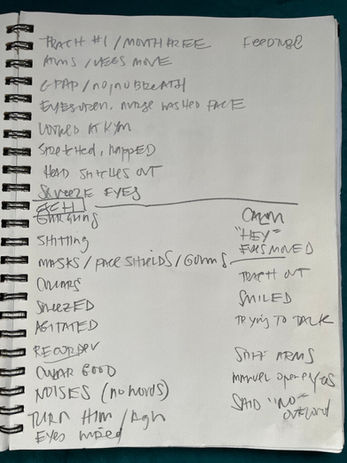 TRACH #1 / MOUTH FREE
FEEDTUBE
ARMS / LEGS MOVE
CPAP / no, no BREATH
EYES OPEN, NURSE WASHED FACE
LOOKED AT KYM
STRETCHED, NAPPED
HEAD STITCHES OUT
SQUEEZE EYES
GURGLING
SHITTING
MASKS / FACE SHIELDS / GOWNS
COLLARS
SNEEZED
AGITATED
RECORDER
COLLAR GOOD
NOISES (no words)
TURN HIM / Agn
EYES
CALM
"HEY"
EYES MOVED
TRACH OUT
SMILED
TRYING TO TALK
STIFF ARMS
MANUAL open eyes
SAID "NO"